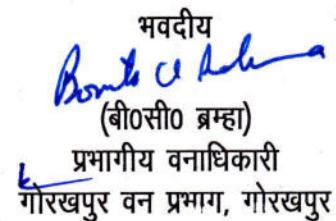 भवदीय
(बी0सी0 ब्रम्हा)
प्रभागीय वनाधिकारी
गोरखपुर वन प्रभाग, गोरखपुर